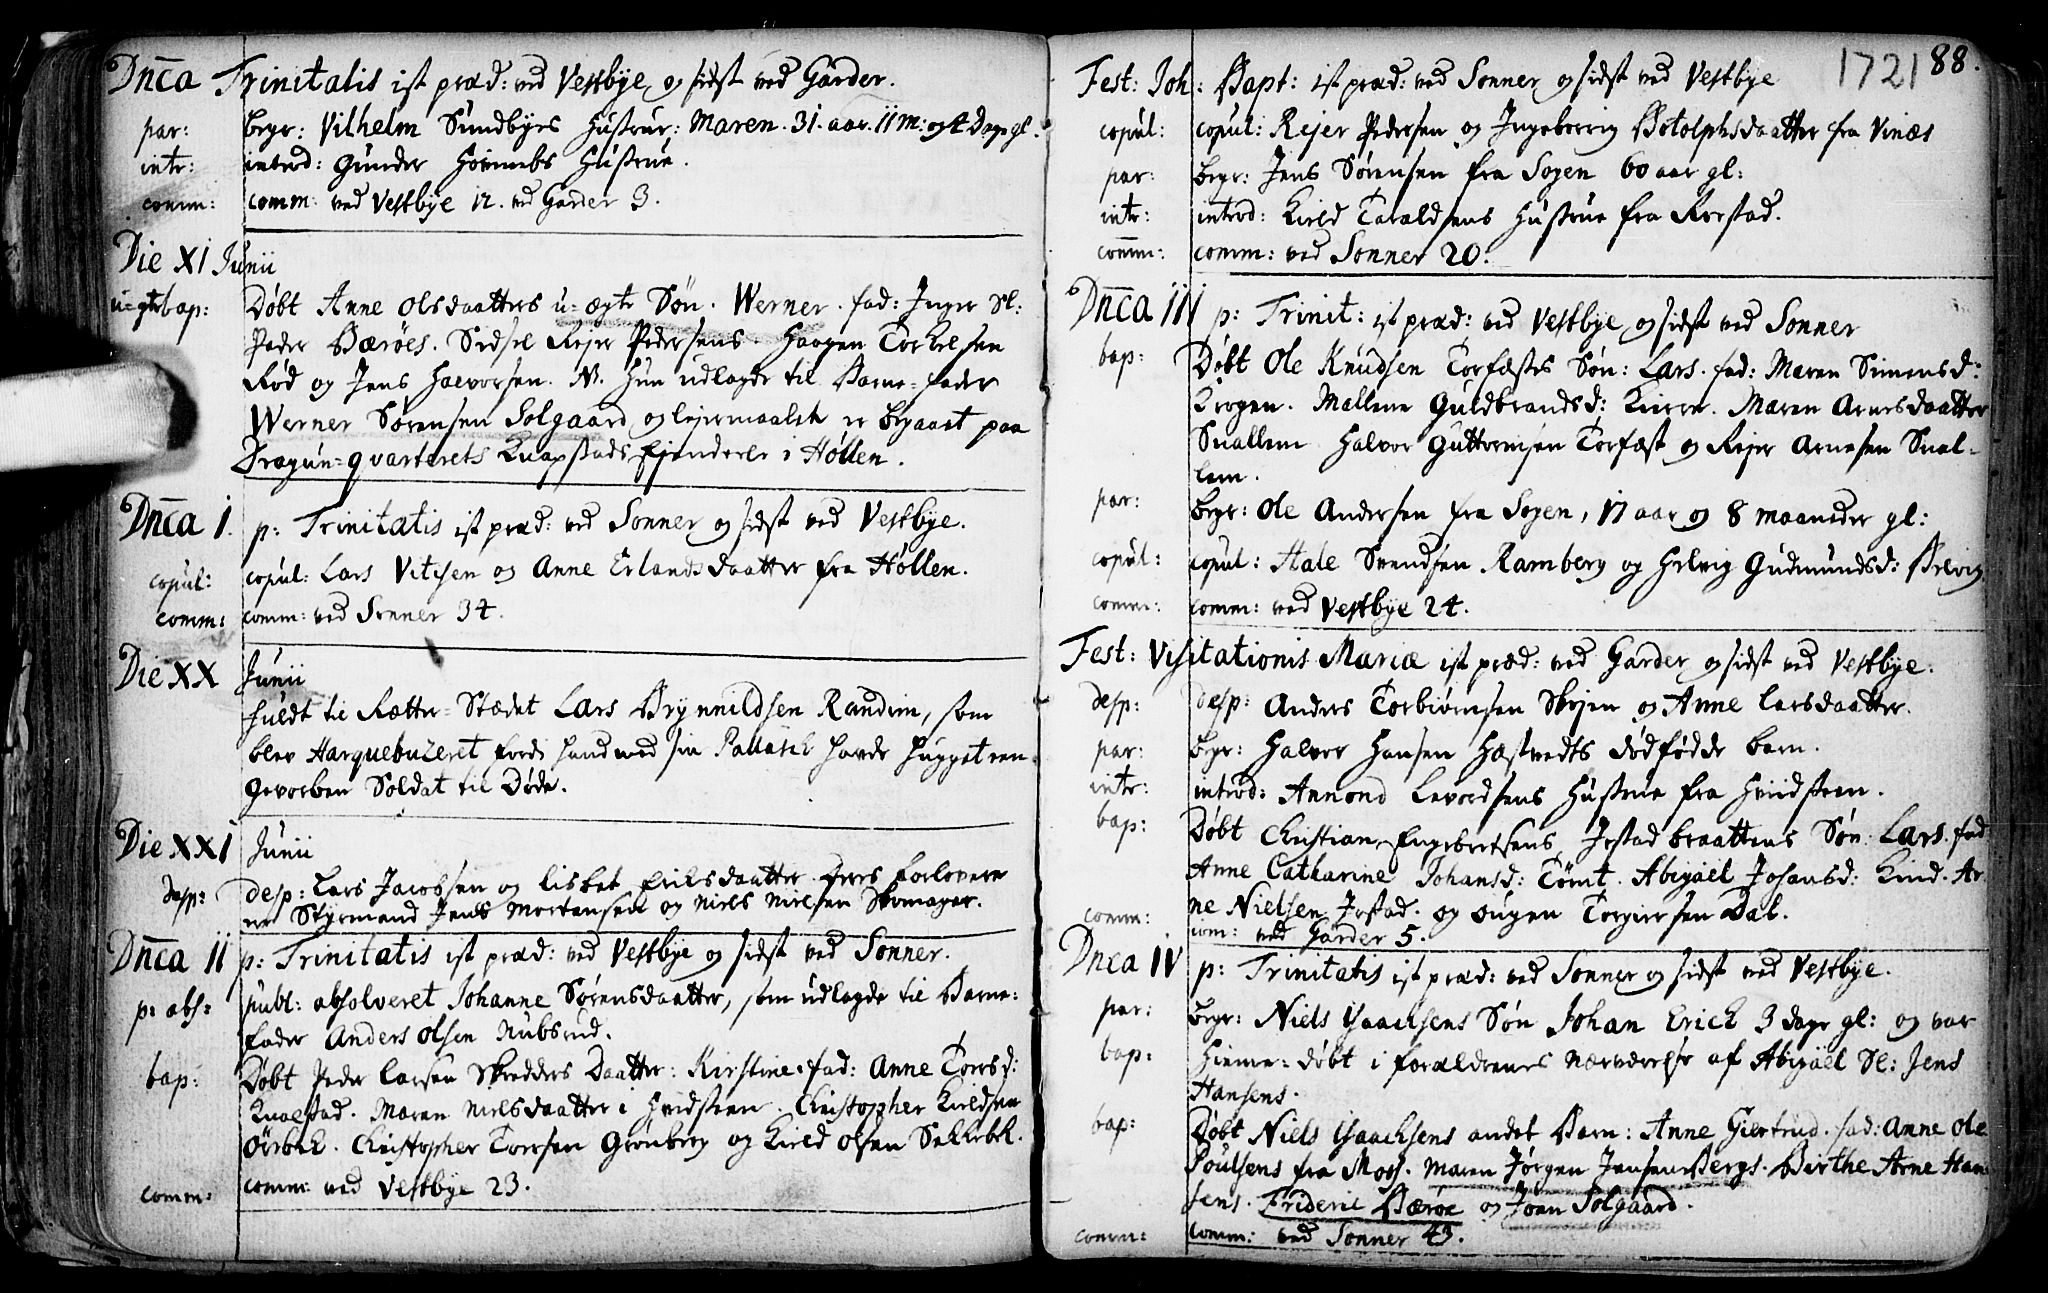 Dn̄ca Trinitatis ist præd: ved Vestbye og sidst ved Garder.
par: begr: Vilhelm Sundbyes Hustrue: Maren. 31. aar. 11 m: og 4 Dage gl.
intr: introd: Gunder Hustrue.
comm: comm: ved Vestbye 12. ved Garder 3.
Die XI Junii
u-ægte bap: Døbt Anne Olsdaatters u-ægte Søn. Werner. fad: Inger Sl:
Peder Bærøes. Sidsel Rejer Pedersens. Haagen Torkelsen
Rød og Jens Halvorsen. NB. Hun udlagde til Barne-fader
Werner Sørensen Solgaard og lejermaalet er begaaet paa
Dragun-qvarterets Knapstads Ejendeele i Høllen.
Dn̄ca I. p: Trinitatis ist præd: ved Sonner og sidst ved Vestbye.
copul: copul: Lars Vitisen og Anne Erlandsdaatter fra Høllen.
comm: comm: ved Sonner 34.
Die XX Junii
fuldt til Rætter-Stædet Lars Brynnildsen Randim, som
blev Harquebuzeret fordi hand med sin Pallasch havde hugget een
gevorben Soldat til Døde.
Die XXI Junii
desp: desp: Lars Jacobsen og Lisbet Eriksdaatter. Deres forlovere
er Styrmand Jens Mortensen og Niels Nielsen Skomager.
Dn̄ca II p: Trinitatis ist præd: ved Vestbye og sidst ved Sonner.
p: abs: publ: absolveret Johanne Sørensdaatter, som udlagde til Barne-
fader Anders Olsen Nubsrud.
bap: Døbt Peder Larsen Skredders Daatter: Kirstine. fad: Anne Toresd:
Knalstad. Maren Nielsdaatter i Hvidsteen. Christopher Kieldsen
Ørebek. Christopher Toresen Grønberg og Kield Olsen Sekkebek.
comm: comm: ved Vestbye 23.
1721 88.
Fest: Joh: Bapt: ist præd: ved Sonner og sidst ved Vestbye
copul: copul: Rejer Pedersen og Ingeborrig Botolphsdaatter fra Vinæs
par: begr: Jens Sørensen fra Sogen 60 aar gl:
intr: introd: Kield Taraldsens Hustrue fra Reestad.
com̄m: comm: ved Sonner 20.
Dn̄ca III p: Trinit: ist præd: ved Vestbye og sidst ved Sonner
bap: Døbt Ole Knudsen Torfæstes Søn: Lars. fad: Maren Simensd:
Krogen. Mallene Guldbrandsd: Kierre. Maren Arnesdaatter
Snallem Halvor Guttormsen Torfæst og Rejer Arnesen Snal-
lem.
par: begr: Ole Andersen fra Sogen, 17 aar og 8 maaneder gl:
copul: copul: Stale Svendsen Ramberg og Helvig Gudmundsd: Brevig
comm: comm: ved Vestbye 24.
Fest: Visitationis Mariæ ist præd: ved Garder og sidst ved Vestbye.
desp: desp: Anders Torbiørnsen Skejen og Anne Larsdaatter.
par: begr: Halvor Hansen Hæstvedts dødfødde barn.
intr: introd: Annond Levordsens Hustrue fra Hviidsteen.
bap: Døbt Christian Engebretsens Jestad braattens Søn. Lars. fad
Anne Catharine Johansd: Tømt. Abigaël Johansd: Kind. Ar-
ne Nielsen Jestad. og Ougen Torgiersen Dal.
comm: com: ved Garder 5.
Dnca IV p: Trinitatis ist præd: ved Sonner og sidst ved Vestbye.
par: begr: Niels Isaachsens Søn Johan Erich 3 dage gl: og var
bap: hieme-døbt i forældrenes nærværelse af Abigaël Sl: Jens
Hansens.
bap: Døbt Niels Isaachsens andet Barn: Anne Giertrud. fad: Anne Ole
Poulsens fra Moss. Maren Jørgen Jensen Bergs. Birthe Arne Han-
sens. Frideric Bærøe og Joen Solgaard.
comm: comm: ved Sonner 43.